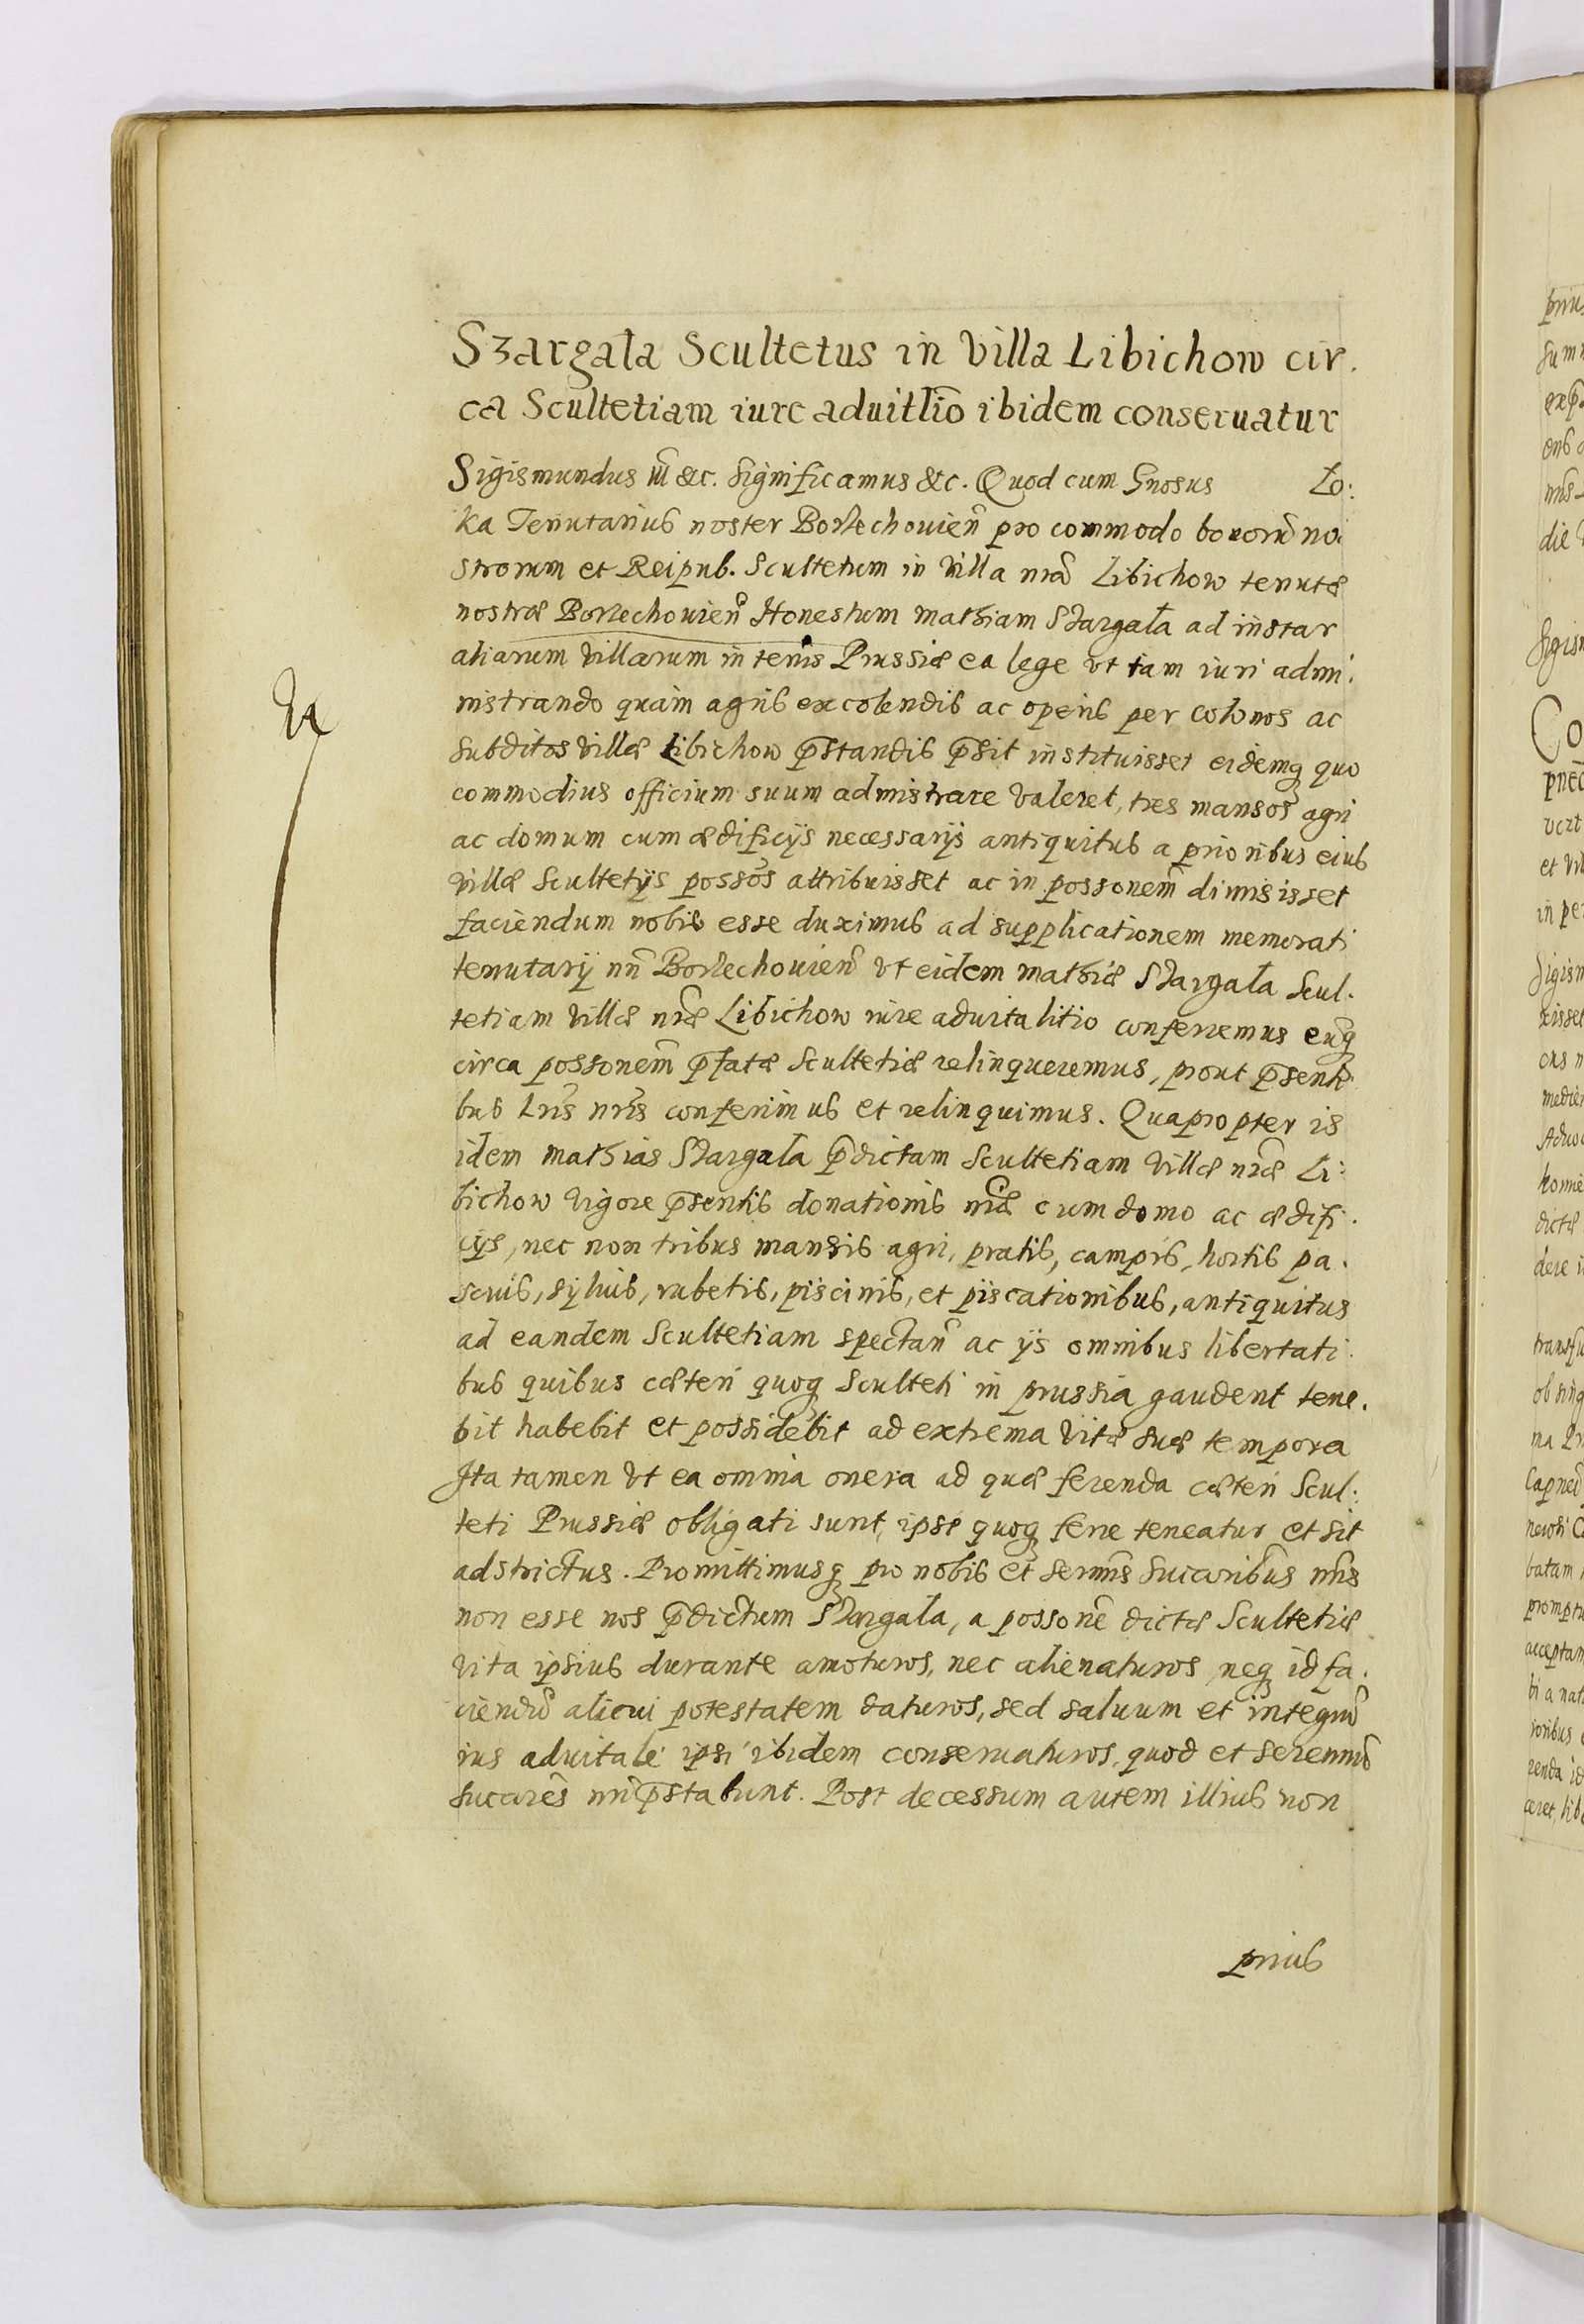 Szargala Scultetus in Villa Libichow cir.
ca Scultetiam iure aduitlio ibidem conseruatur
Sigismundus iii &c. Significamus &c. Quod cum Gnosus Lo:
ka Tenutarius noster Borzechouien pro commodo bonorū no
strorum et Reipub. Scultetum in Villa nrā Libichow tenutæ
nostræ Borzechouien Honestum mathiam Szargala ad instar
aliarum villarum in terris Prussiæ ea lege vt tam iuri admi.
nistrando quàm agris excolendis ac operis per colonos ac
subditos villæ Libichow p̄standis p̄sit instituisset eidemq quo
commodius officium suum admistrare valeret, tres mansos agri
ac domum cum ædificijs necessarijs antiquitus a prioribus eius
villæ Scultetijs possos attribuisset ac in possonem dimisisset
faciendum nobis esse duximus ad supplicationem memorati
tenutarij nri Borzechouien vt eidem mathiæ Szargala Scul.
tetiam villæ nræ Libichow iure aduitalitio conferremus eūq
circa possonem p̄fatæ Scultetiæ relinqueremus, prout p̄senti.
bus lris nris conferimus et relinquimus. Quapropter is
idem mathias Szargala p̄dictam Scultetiam villæ nræ Li:
bichow vigore p̄sentis donationis nræ cum domo ac ædifi.
cijs, nec non tribus mansis agri, pratis, campis, hortis pa.
scuis, syluis, rubetis, piscinis, et piscationibus, antiquitus
ad eandem Scultetiam spectan ac ijs omnibus libertati.
bus quibus cæteri quoq Sculteti in prussia gaudent tene.
bit habebit et possidebit ad extrema vitæ suæ tempora
Ita tamen vt ea omnia onera ad quæ ferenda cæteri Scul.
teti Prussiæ obligati sunt, ipse quoq ferre teneatur et sit
adstrictus. Promittimusq pro nobis et sermis sucaribus nris
non esse nos p̄dictum Szargala, a possone dictæ Scultetiæ
vita ipsius durante amoturos, nec alienaturos neq id fa.
ciendū alicui potestatem daturos, sed saluum et integrū
ius aduitale ipsi ibidem conseruaturos, quod et serenmi
sucares nri p̄stabunt. Post decessum autem illius non
prius